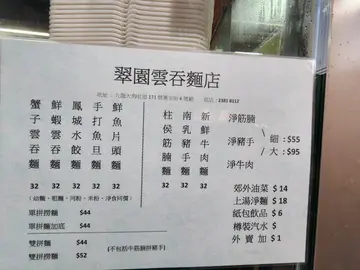 翠園雲吞麵店
蟹子雲吞麵 32
鮮蝦雲吞麵 32
鳳城水餃麵 32
手打魚旦麵 32
鮮魚片頭麵 32
柱侯牛筋腩麵 32
南乳豬手麵 32
新鮮牛肉麵 32
淨筋腩
淨豬手
淨牛肉
細: $55
大: $95
(幼麵、粗麵、河粉、米粉、淨食同價)
單拼撈麵 $44
單拼麵加底 $44
雙拼麵 $44
雙拼撈麵 $52
(不包括牛筋腩拼豬手)
郊外油菜 $ 14
上湯淨麵 $ 18
紙包飲品 $ 6
樽裝汽水 $
外賣加 $ 1